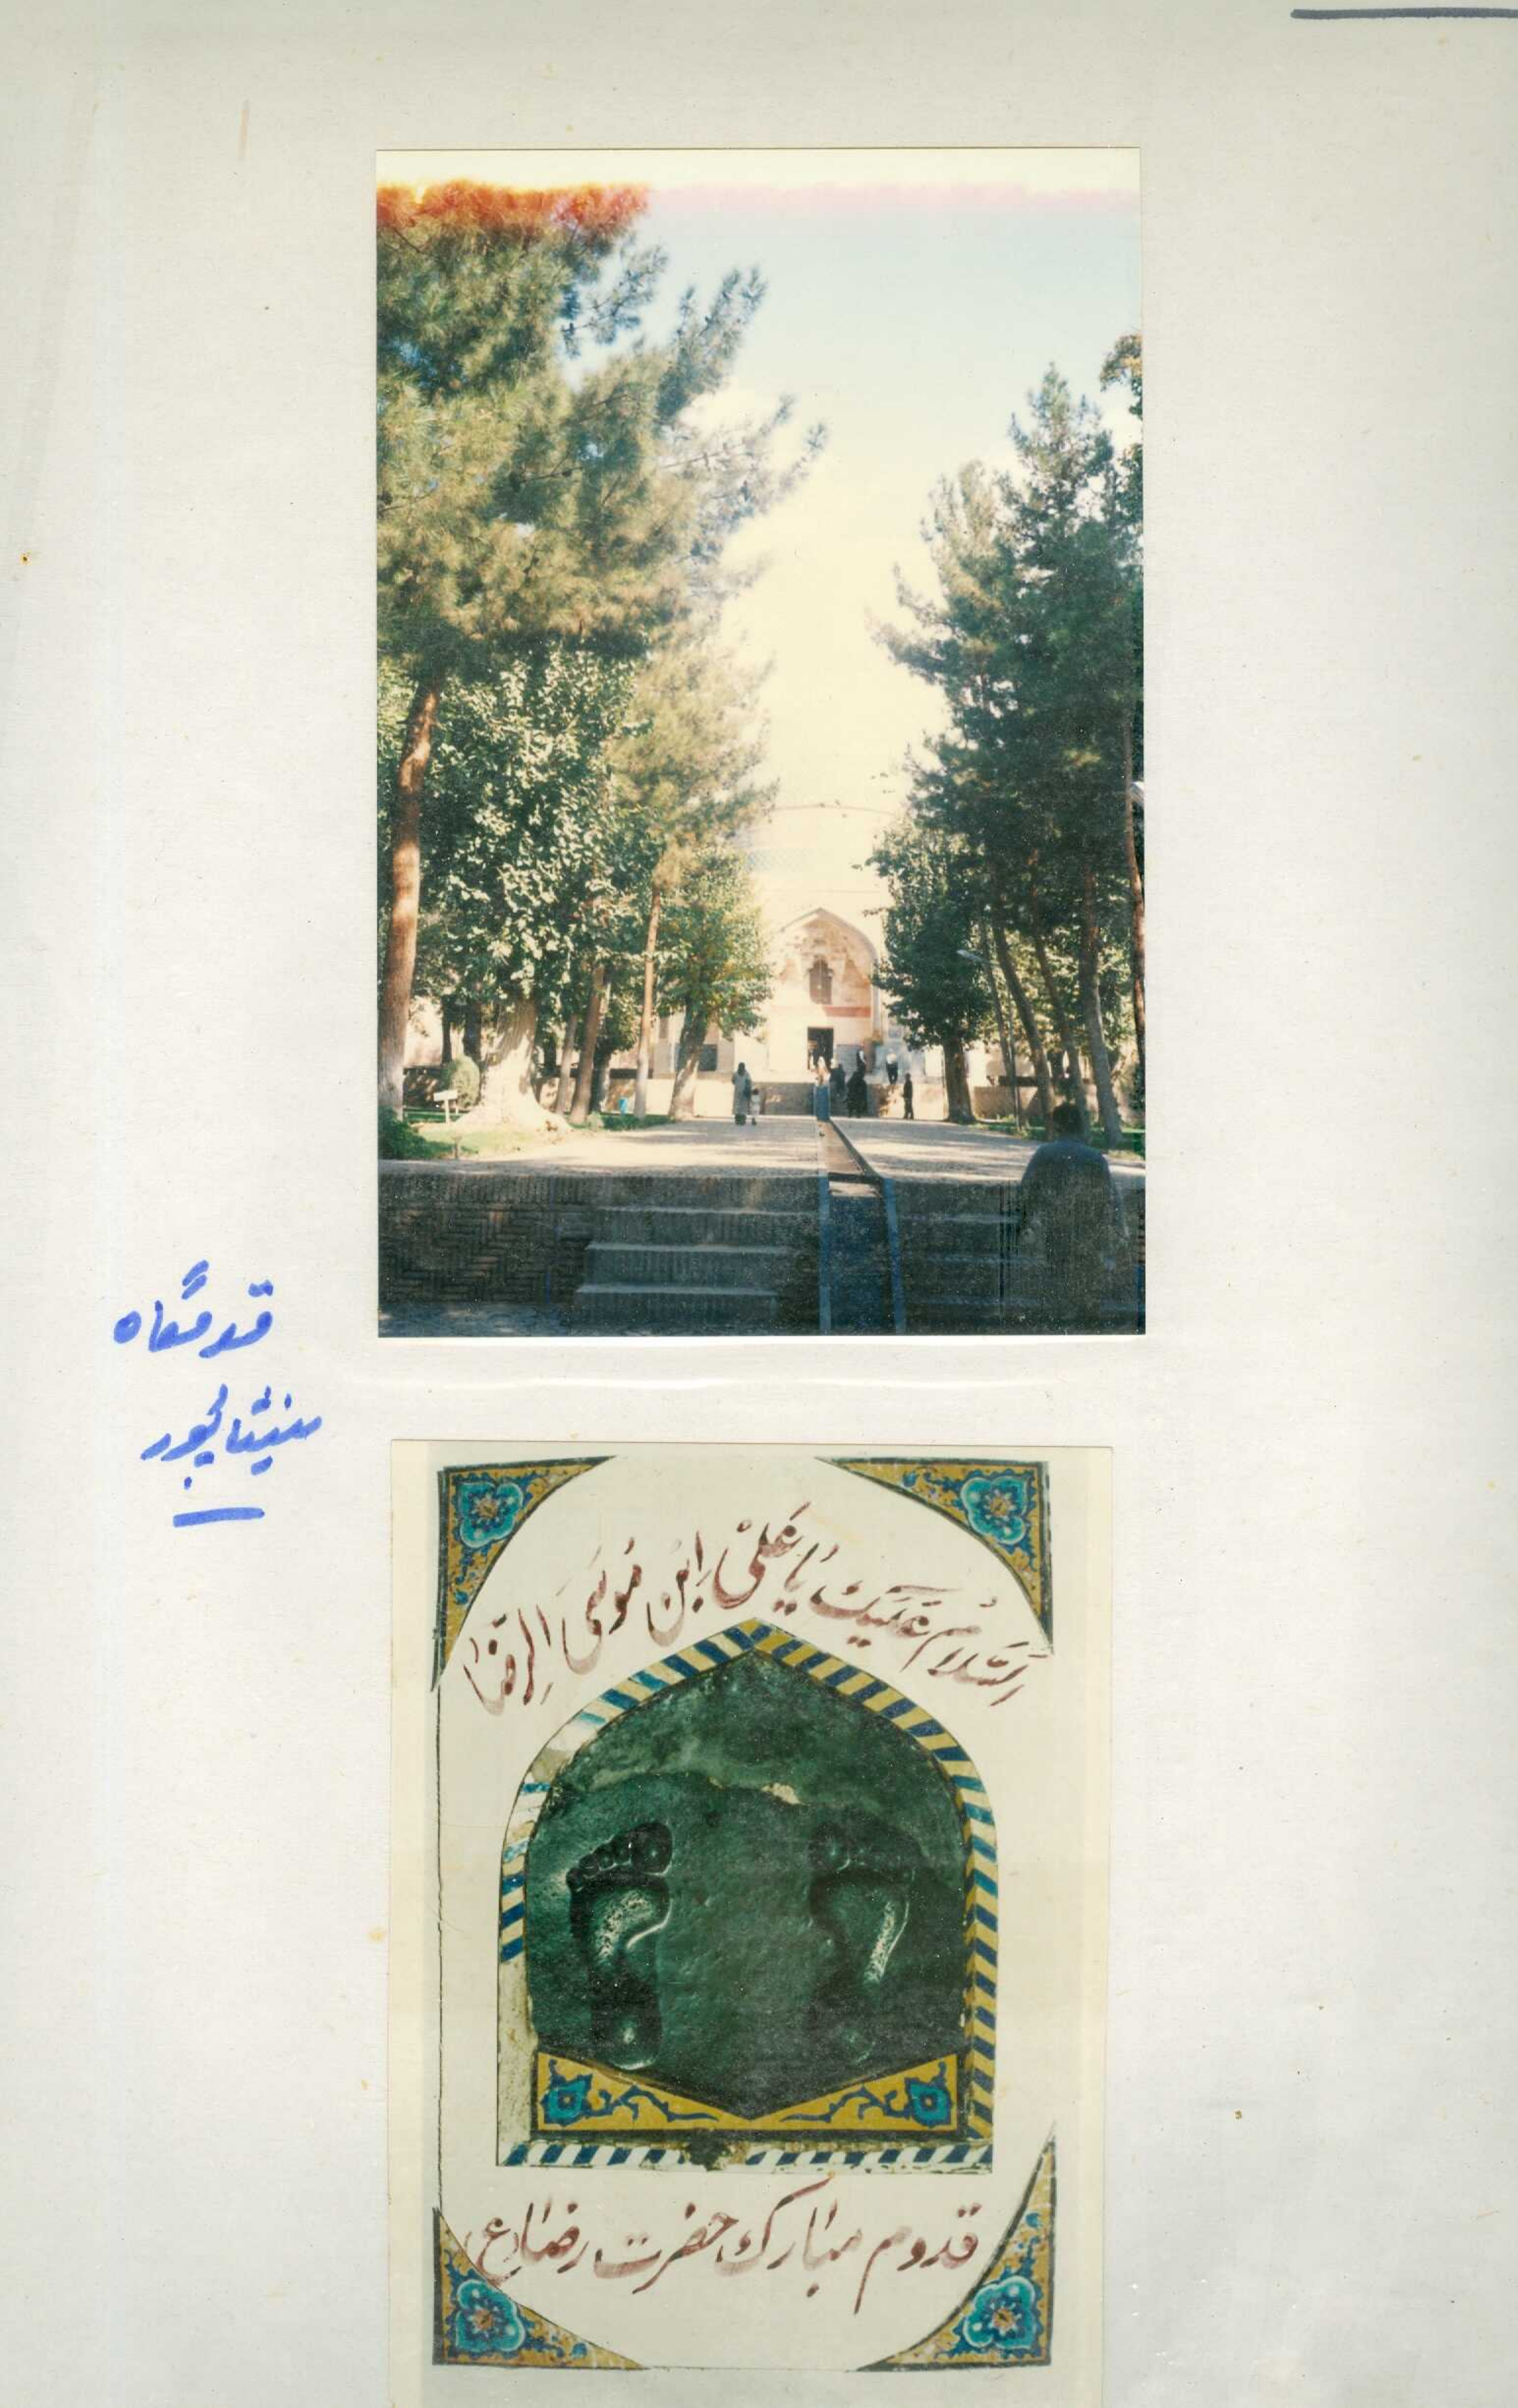 قدمگاه
نیشابور
السَّلامُ عَلَیْكَ یٰا عَلیْ اِبْنِ مُوسَی الِرّضٰا
قدوم مبارک حضرت رضا(ع)